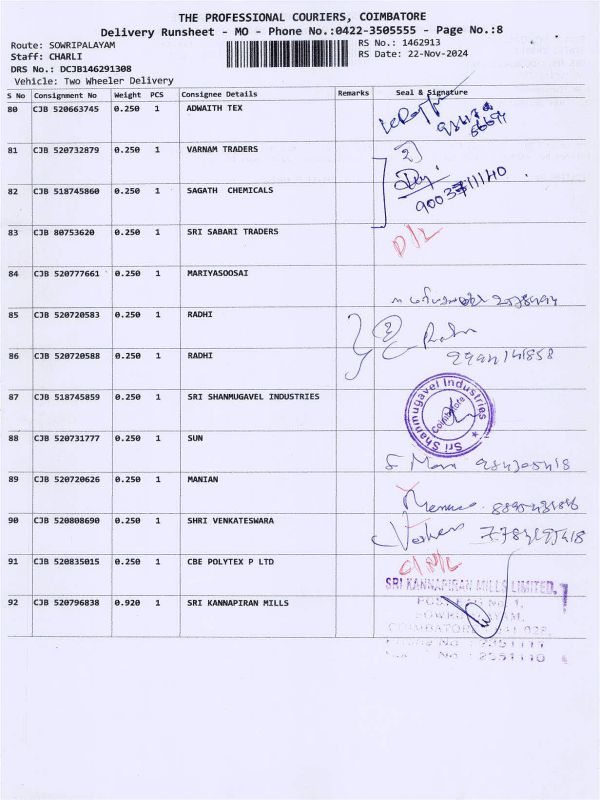 THE PROFESSIONAL COURIERS, COIMBATORE
Delivery Runsheet - MO - Phone No.:0422-3505555 - Page No.:8
Route: SOWRIPALAYAM
RS No.: 1462913
Staff: CHARLI
RS Date: 22-Nov-2024
DRS No.: DCJB146291308
Vehicle: Two Wheeler Delivery
S No Consignment No Weight PCS Consignee Details Remarks Seal & Signature
80 CJB 520663745 0.250 1 ADWAITH TEX
81 CJB 520732879 0.250 1 VARNAM TRADERS 2
82 CJB 518745860 0.250 1 SAGATH CHEMICALS
83 CJB 80753620 0.250 1 SRI SABARI TRADERS D/L
84 CJB 520777661 0.250 1 MARIYASOOSAI
85 CJB 520720583 0.250 1 RADHI 2
86 CJB 520720588 0.250 1 RADHI
87 CJB 518745859 0.250 1 SRI SHANMUGAVEL INDUSTRIES
Sri Shanmugavel Industries
Coimbatore
88 CJB 520731777 0.250 1 SUN
89 CJB 520720626 0.250 1 MANIAN
90 CJB 520808690 0.250 1 SHRI VENKATESWARA
91 CJB 520835015 0.250 1 CBE POLYTEX P LTD
SRI KANNAPIRAN MILLS LIMITED.
92 CJB 520796838 0.920 1 SRI KANNAPIRAN MILLS